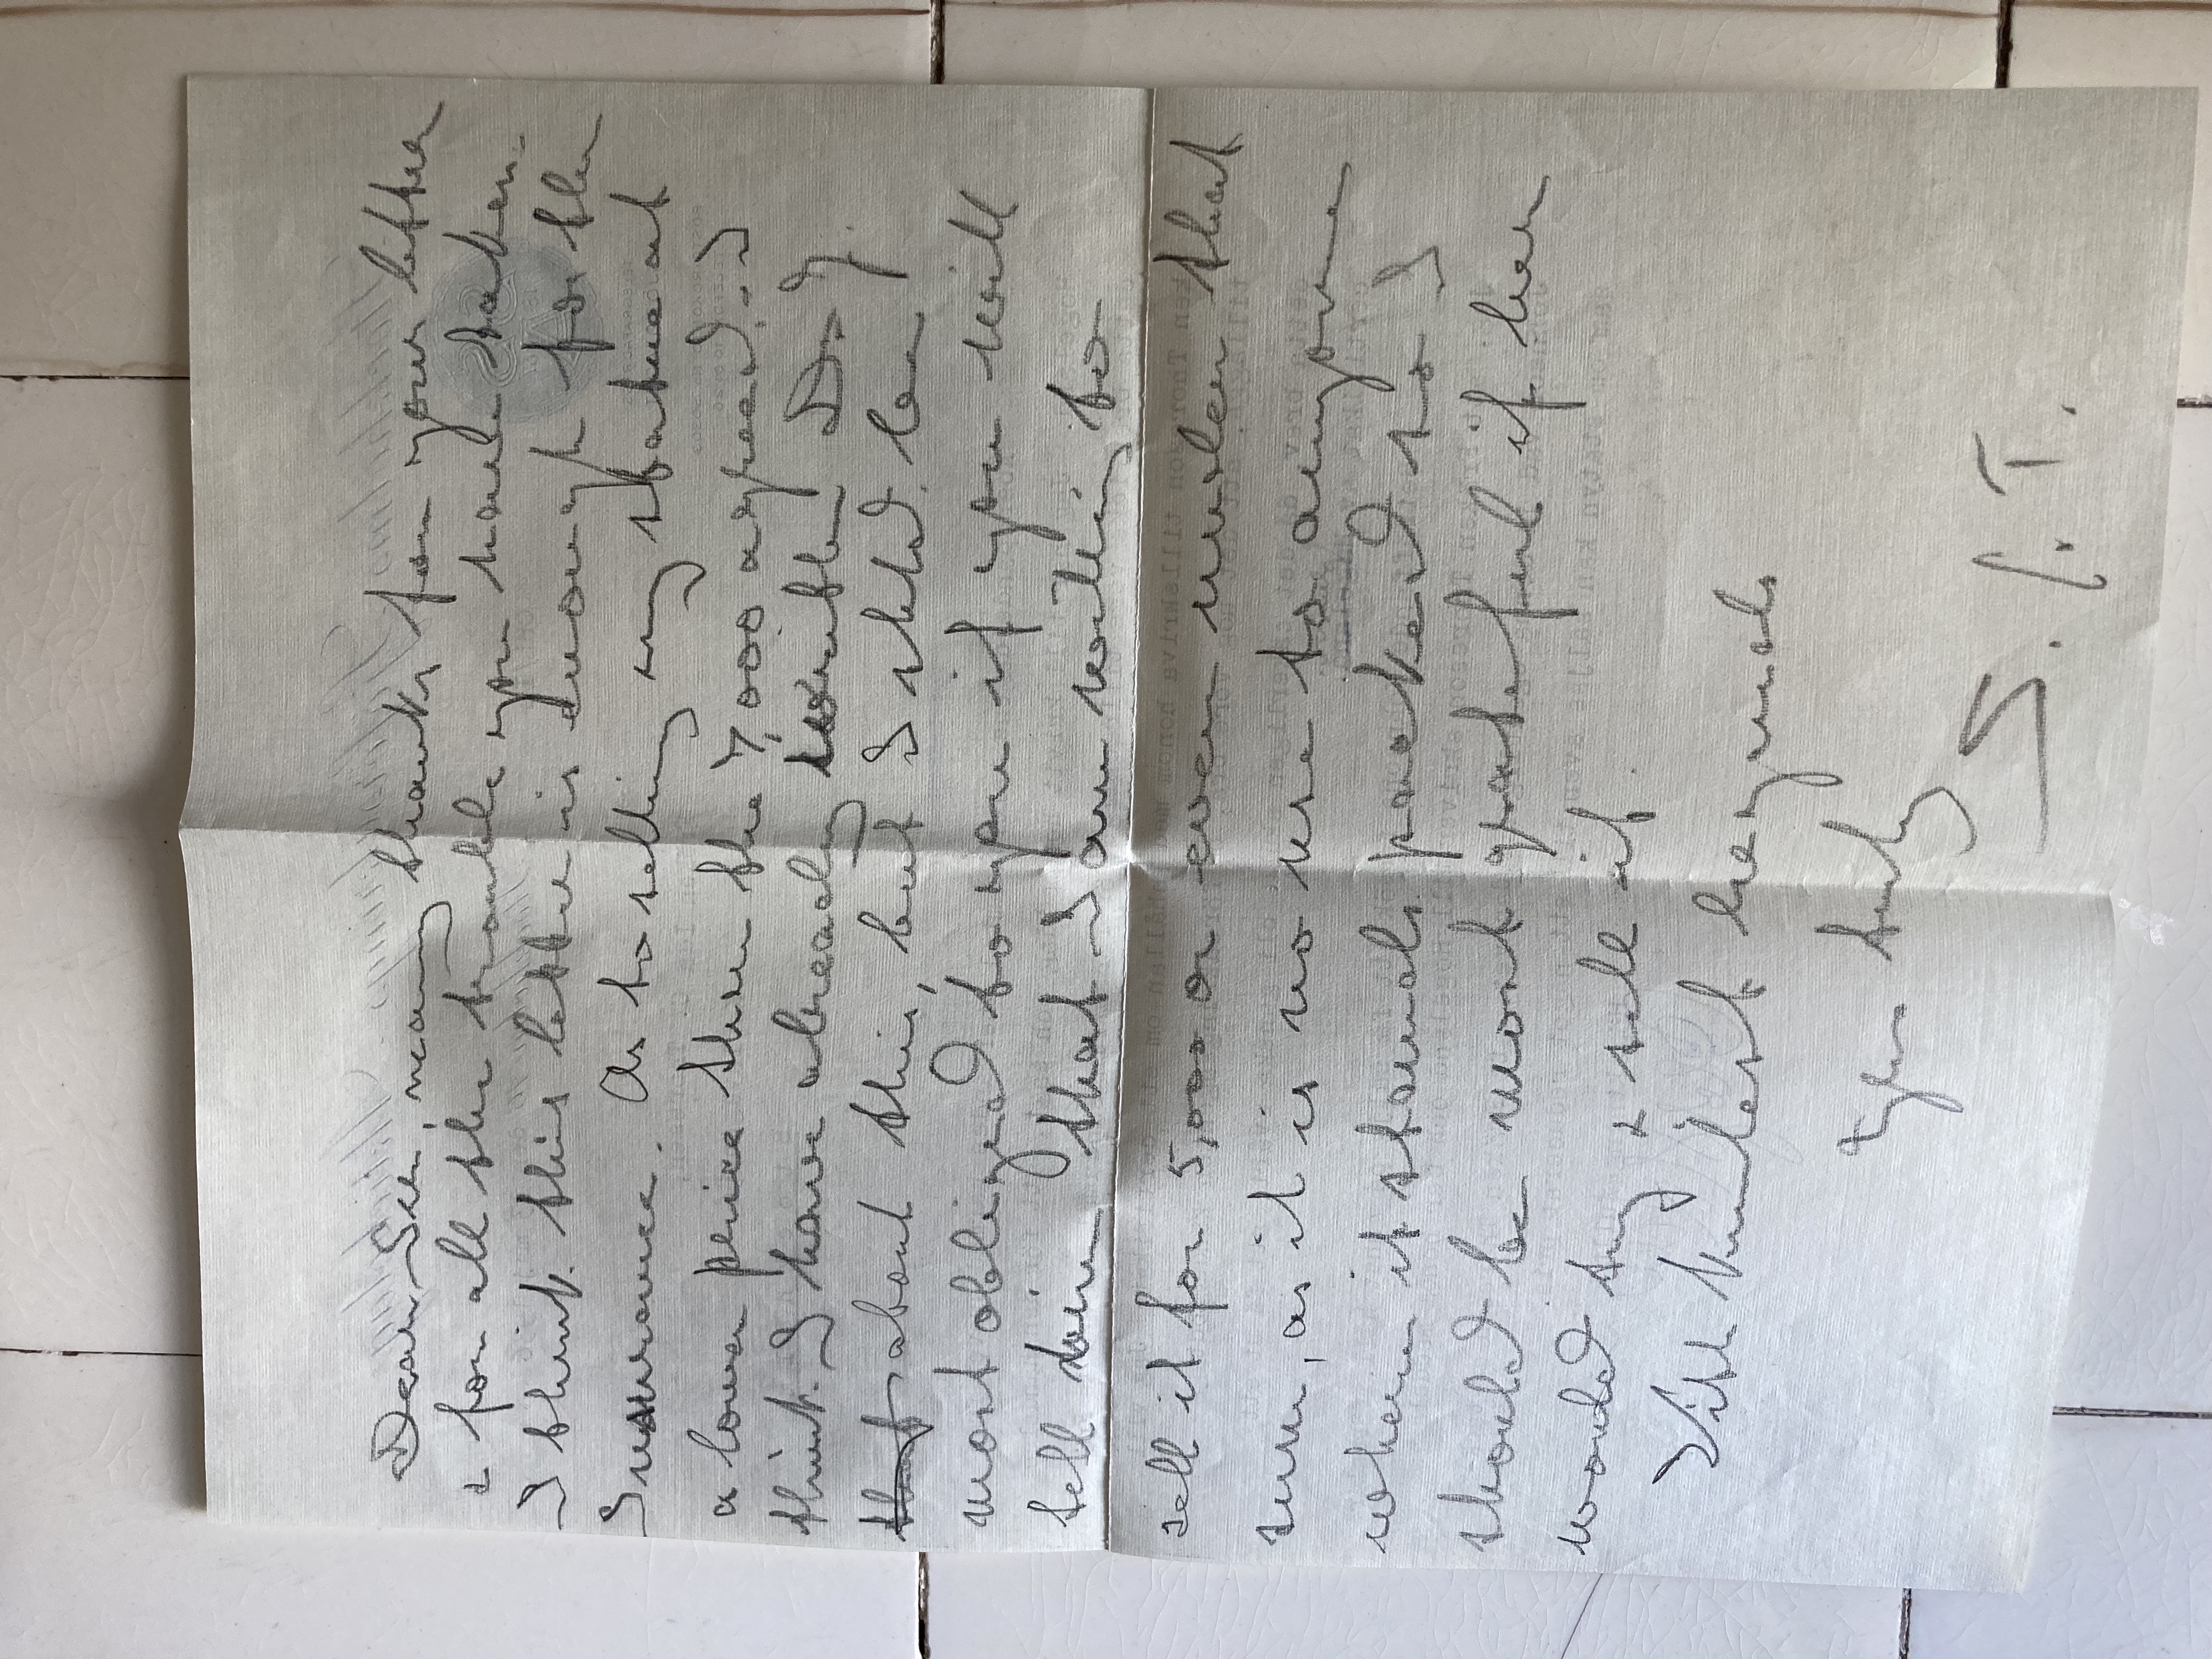 Dear Sir, many thanks for your letter
& for all the trouble you have taken.
I think this letter is enough for the
Insurance. As to selling my statue at
a lower price than the 7,000 agreed, I
think I have already written Dr J.
that about this, but I shd. be
most obliged to you if you will
tell him that I am willing to
sell it for 5,000 or even under that
sum, as it is no use to anyone
where it stands packed so I
should be most grateful if he
would try & sell it.
With kindest regards
Yrs truly
S. T.